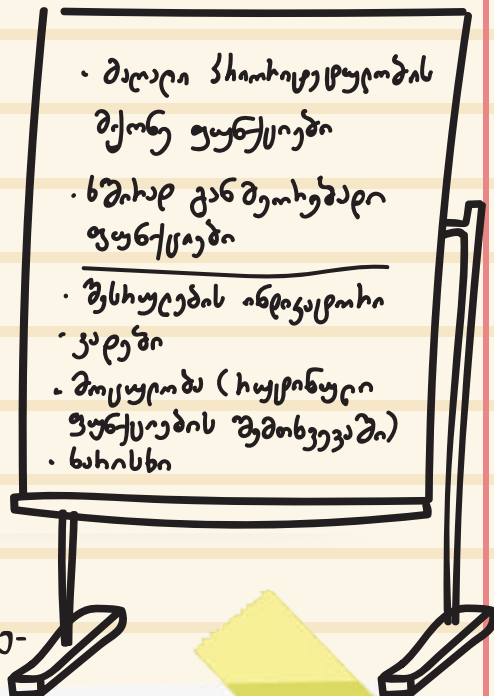 • მაღალი პრიორიტეტულობის
მქონე ფუნქციები
• ხშირად განმეორებადი
ფუნქციები
• შესრულების ინდიკატორი
• ვადები
• მოცულობა (რუტინული
ფუნქციების შემთხვევაში)
• ხარისხი